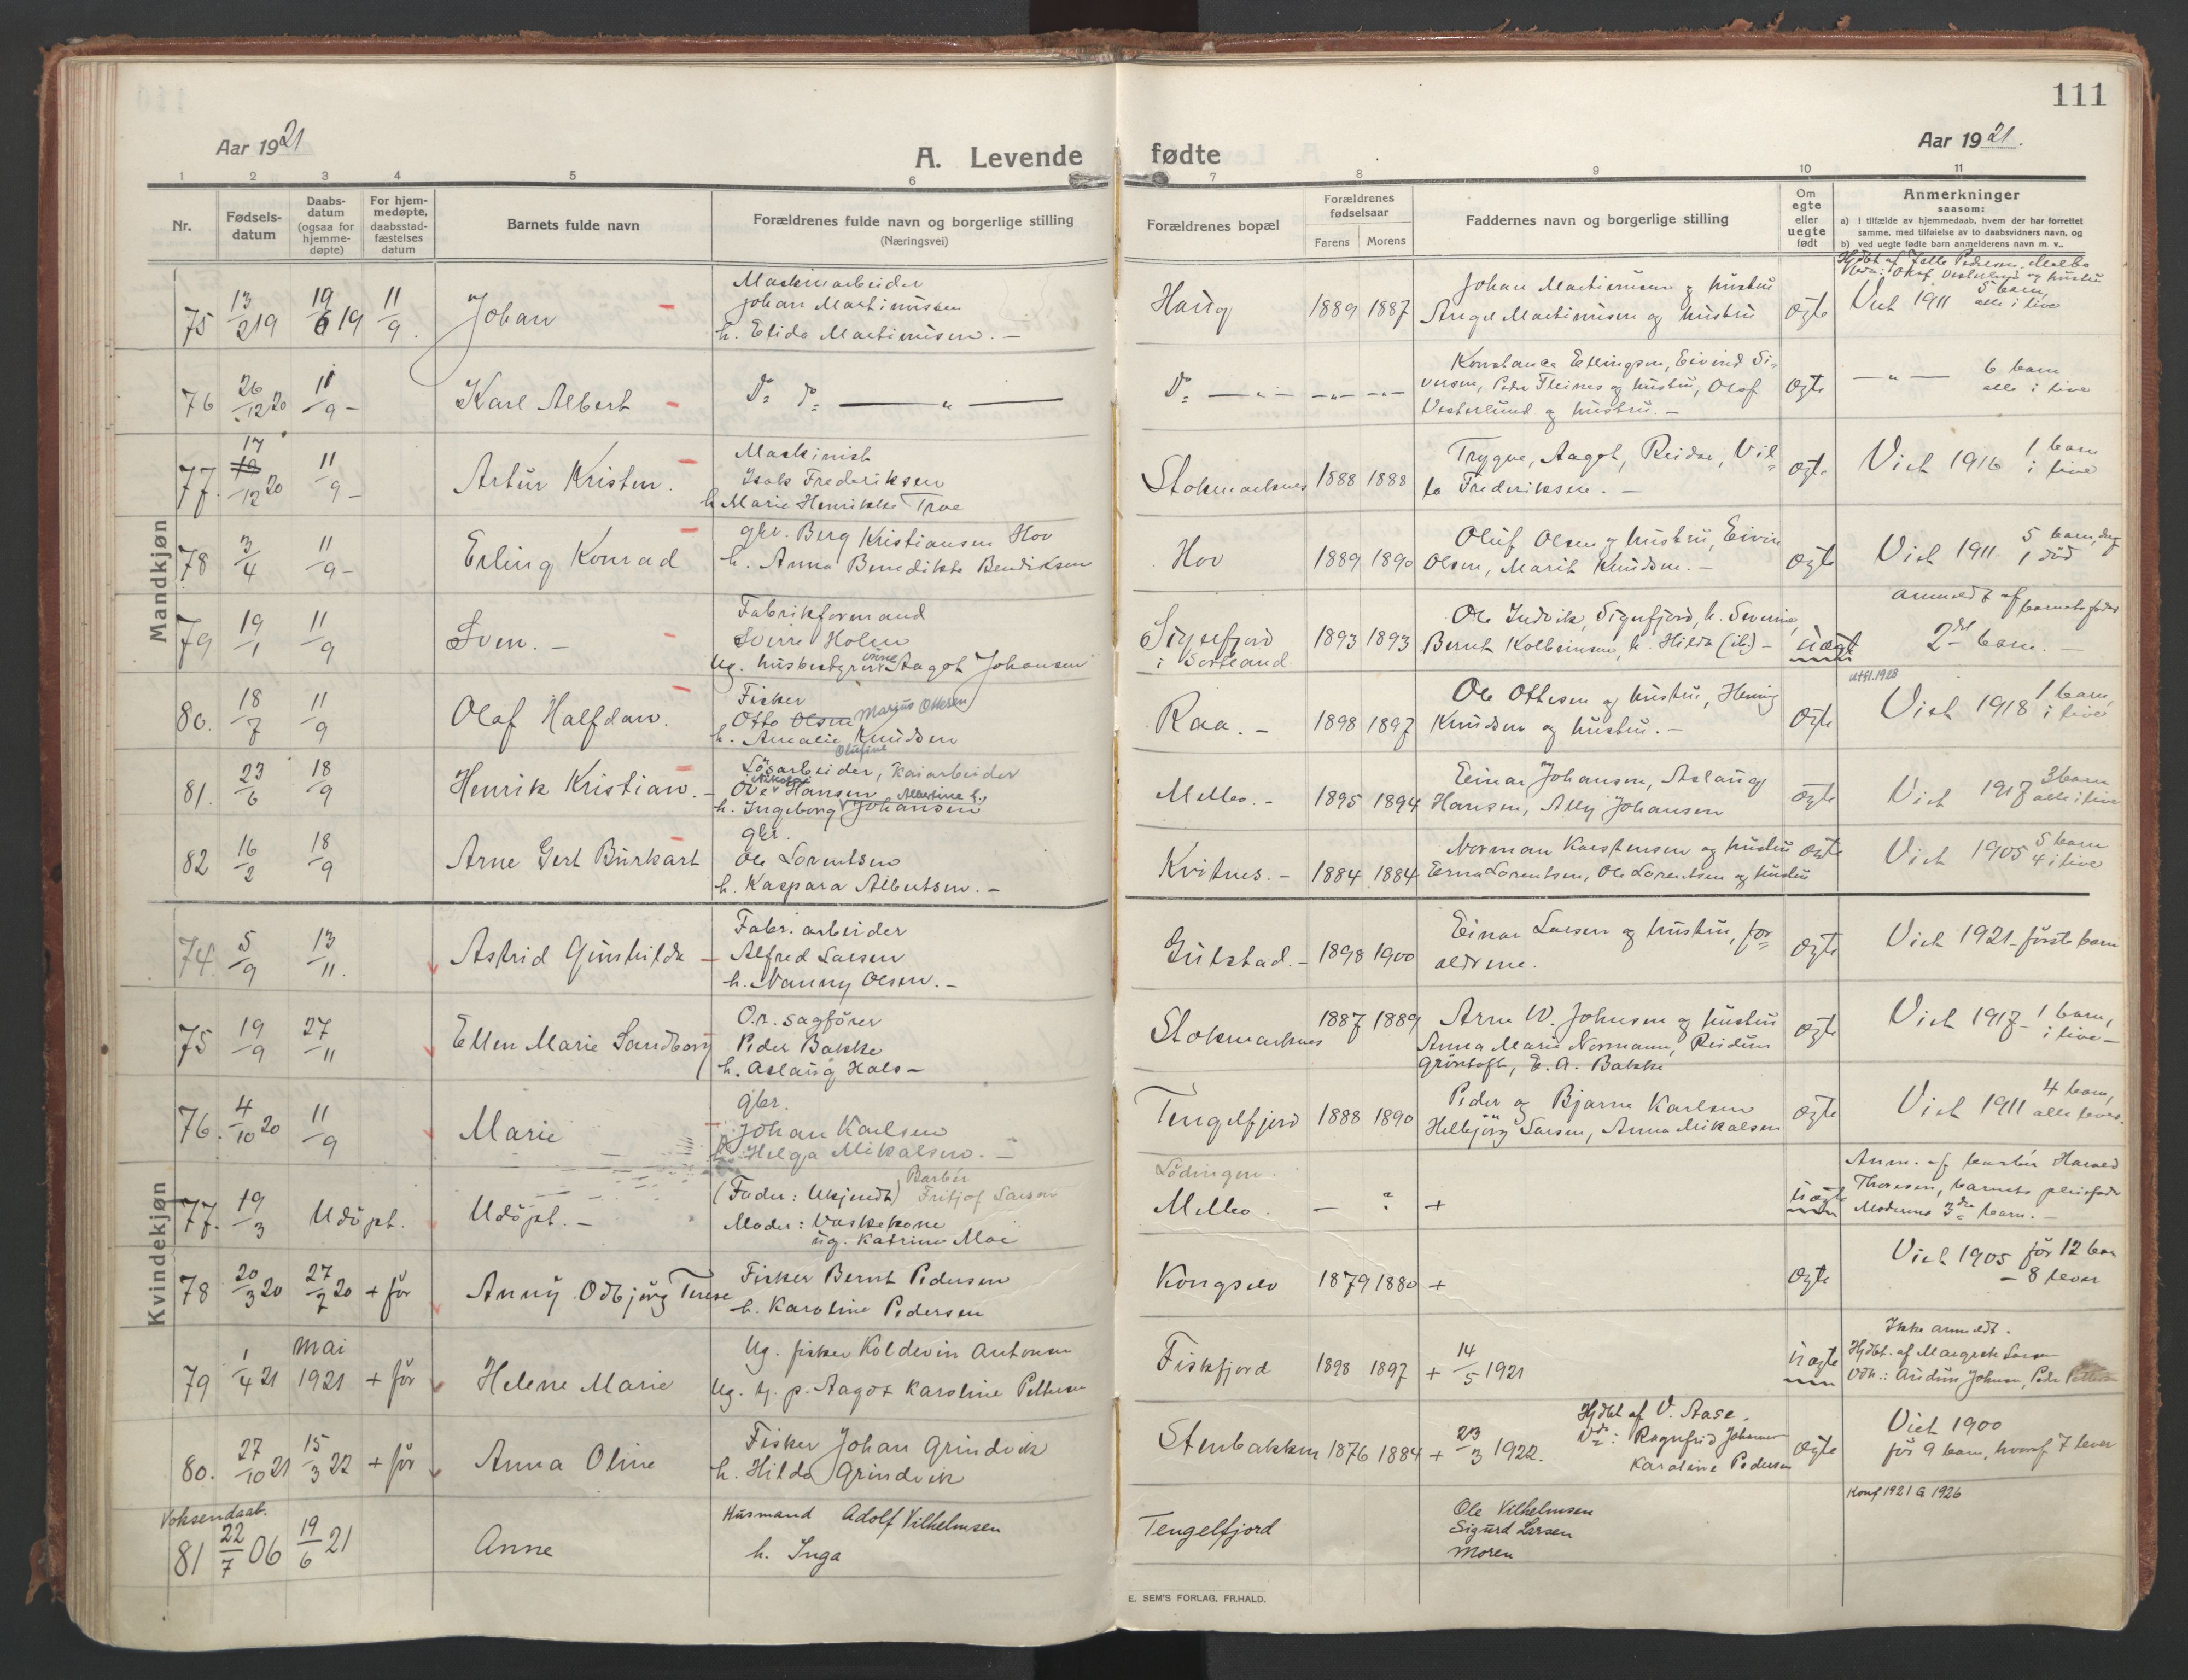 111
Aar 1921
A. Levende fødte
Aar 1921.
1 2 3 4 5 6 7 8 9 10 11
Nr.
Fødsels-
datum
Daabs-
datum
(ogsaa for
hjemme-
døpte)
For hjem-
medøpte,
daabsstad-
fæstelses
datum
Barnets fulde navn
Forældrenes fulde navn og borgerlige stilling
(Næringsvei)
Forældrenes bopæl
Forældrenes
fødselsaar
Farens Morens
Faddernes navn og borgerlige stilling
Om
egte
eller
uegte
født
Anmerkninger
saasom:
a) i tilfælde av hjemmedaab, hvem der har forrettet
samme, med tilføielse av to daabsvidners navn, og
b) ved uegte fødte barn anmelderens navn m. v..
Mandkjøn
75 13/2 19 19/6 19 11/9. Johan
Maskinarbeider
Johan Martinussen
h. Elida Martinusen. —
Haug 1889 1887
Johan Martinusen og hustru
Angel Martinusen og hustru
ogte
Viet 1911 5 barn,
alle i live
76 26/12 20 11/9 - Karl Albert
Do Do — " —
Do — " —
Konstance Ellingsen, Eivind Si-
versen, Peder Fleines og hustru, Olaf
Vesterlund og hustru. —
ogte
— " — 6 barn
alle i live
77. 17/12 20 11/9 - Artur Kristen.
Maskinist
Isak Frederiksen
h Marie Henrikke Troe
Stokmarknes 1888 1888
Trygve, Aagot, Reidar, Vil-
to Frederiksen. —
ogte
Viet 1916 1 barn
i live
78 3/4 11/9 - Erling Konrad
gbr. Berg Kristiansen Hov
h. Anna Benedikte Bendiksen
Hov 1889 1890
Oluf Olsen og hustru, Eivin
Olsen, Marit Knudsen. —
ogte
Viet 1911 5 barn,
1 død
79 19/1 11/9 Sven. —
Fabrikformand
Sverre Holm
Ug. husbestyrerinne Aagot Johansen
Sigerfjord
i Sortland 1893 1893
Ole Indvik, Sigerfjord, h. Severine,
Bernt Kolbeinsen, h. Hilda (ib.) —
uægte
anmeldt af barnets fader
2det barn. —
80. 18/7 11/9 Olaf Halfdan.
Fisker
Otto Olsen Marius Ottesen
h. Amalie Knudsen
Raa. — 1898 1897
Ole Ottesen og hustru, Hennig
Knudsen og hustru. —
ogte
utfl. 1928
Viet 1918 1 barn,
i live
81. 23/6 18/9 Henrik Kristian. —
Olufine
Løsarbeider, Kaiarbeider
Ove Nikolai Hansen
h. Ingeborg Albertine h. Johansen
Melbo. — 1895 1894
Einar Johansen, Aslaug
Hansen, Ally Johansen
ogte
Viet 1917 3 barn
alle i live
82 16/2 18/9 Arne Gert Burkart
gbr.
Ole Lorentsen
h. Kaspara Albertsen. —
Kvitnes. — 1884 1884
Norman Karstensen og hustru
Erna Lorentsen, Ole Lorentsen og hustru
ogte
Viet 1905 5 barn
4 i live
Kvindekjøn
74. 5/9 13/11. Astrid Gunhilda —
Fabr. arbeider
Alfred Larsen
h. Nanny Olsen. —
Gulstad. — 1898 1900
Einar Larsen og hustru, for-
ældrene.
ogte
Viet 1921 - første barn
75 19/9 27/11 Ellen Marie Sandborg
O.r. sagfører
Peder Bakke
h. Aslaug Hals —
Stokmarknes 1887 1889
Arne W. Johnsen og hustru
Anna Marie Normann, Reidun
Grøntoft, E. A. Bakke
ogte
Viet 1917 - 1 barn,
i live —
76. 4/10 20 11/9 Marie
gbr.
Johan Karlsen
h. Helga Mikalsen. —
Tengelfjord 1888 1890
Peder og Bjarne Karlsen
Helbjørg Larsen, Anna Mikalsen
ogte
Viet 1911 4 barn,
alle lever.
77. 19/3 Udøpt. Udøpt. —
(Fader: Ukjendt) Barbér Fritjof Larsen
Moder: Vaskekone
ug. Katrine Moe
Lødingen.
Melbo. — ? +
uægte
Anm. af barbér Harald
Thoresen, barnets pleiefader
Moderens 3die barn. —
78 20/3 20 27/7 20 + før Anny Odbjørg Terese
Fisker Bernt Pedersen
h. Karoline Pedersen
Kongselv 1879 1880 +
ogte
Viet 1905 før 12 barn
— 8 lever
79 1/4 21 mai
1921 + før Helene Marie
Ug. fisker Koldevin Antonsen
Ug. tj. p. Aagot Karoline Pettersen
Fiskfjord 1898 1897 + 14/5 1921
uægte
Ikke anmeldt.
Hjdbt. af Margrete Larsen
Vdn.: Audun Johnsen, Peder Pettersen
80. 27/10 21 15/3 22 + før Anna Oline
Fisker Johan Grindvik
h. Hilda Grindvik
Stenbakken 1876 1884 + 23/3 1922.
Hjdbt af V. Aase.
Vdn: Ragnfrid Johansen
Karoline Pedersen
ogte
Viet 1900
før 9 barn, hvoraf 7 lever
Voksendaab.
81 22/7 06 19/6 21 Anne
Husmand Adolf Vilhelmsen
h. Inga
Tengelfjord
Ole Vilhelmsen
Sigurd Larsen
Moren
Konf 1921 G 1926
E. SEM'S FORLAG, FR.HALD.